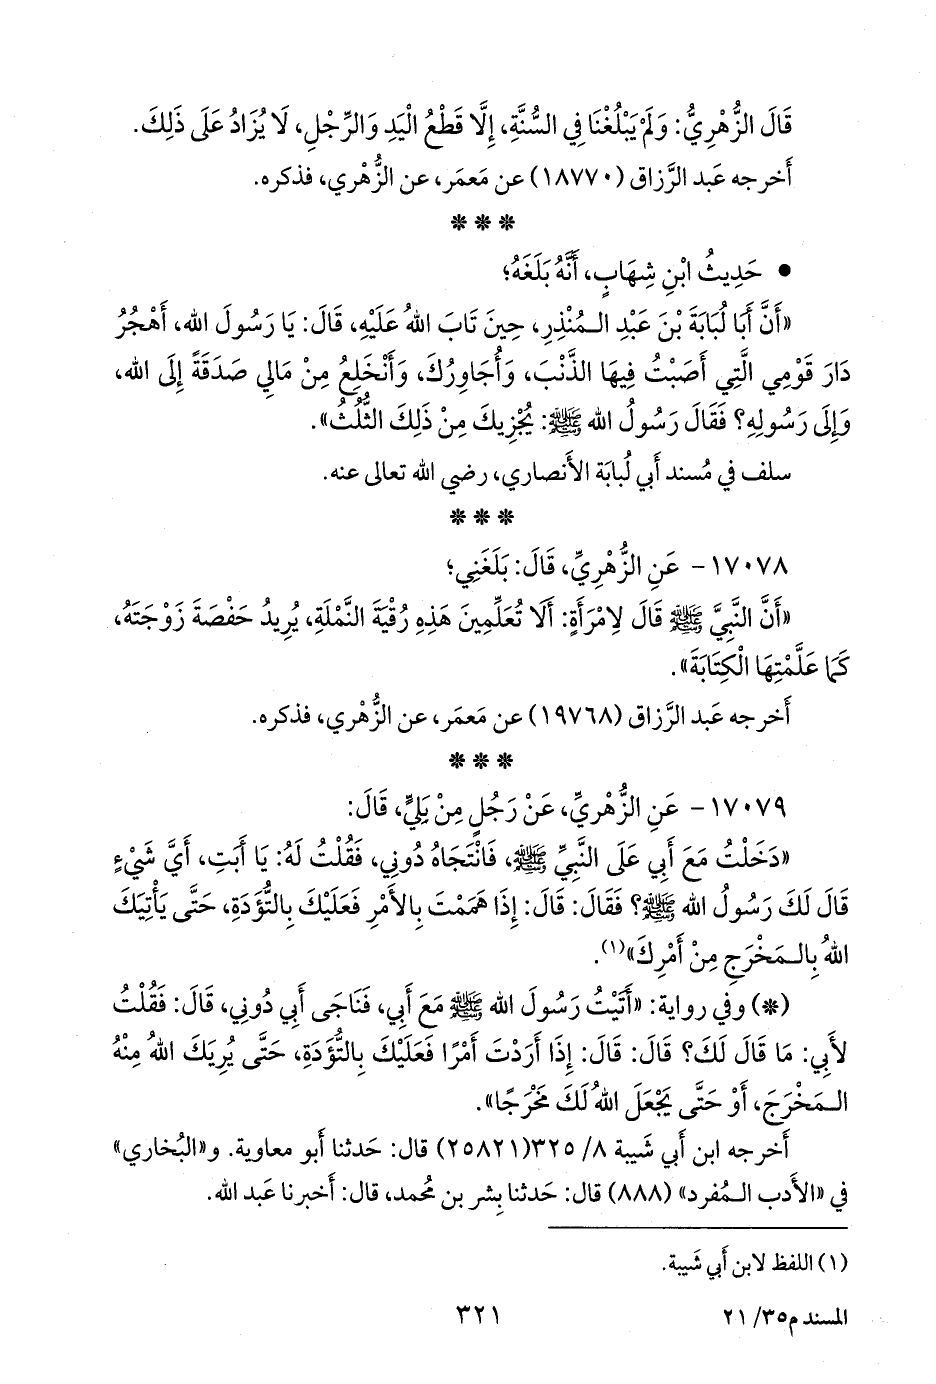 قَالَ الزُّهْرِيُّ: وَلَمْ يَبْلُغْنَا فِي السُّنَّةِ، إِلَّا قَطْعُ الْيَدِ وَالرِّجْلِ، لَا يُزَادُ عَلَى ذَلِكَ.
أَخرجه عَبد الرَّزاق (١٨٧٧٠) عن مَعمَر، عن الزُّهْري، فذكره.
* * *
• حَدِيثُ ابْنِ شِهَابٍ، أَنَّهُ بَلَغَهُ؛
«أَنَّ أَبَا لُبَابَةَ بْنَ عَبْدِ الـمُنْذِرِ، حِينَ تَابَ اللهُ عَلَيْهِ، قَالَ: يَا رَسُولَ الله، أَهْجُرُ
دَارَ قَوْمِي الَّتِي أَصَبْتُ فِيهَا الذَّنْبَ، وَأُجَاوِرُكَ، وَأَنْخَلِعُ مِنْ مَالِي صَدَقَةً إِلَى الله،
وَإِلَى رَسُولِهِ؟ فَقَالَ رَسُولُ الله ﷺ: يُجْزِيكَ مِنْ ذَلِكَ الثُّلُثُ».
سلف في مُسند أَبي لُبابَة الأَنصاري، رضي الله تعالى عنه.
* * *
١٧٠٧٨ - عَنِ الزُّهْرِيِّ، قَالَ: بَلَغَنِي؛
«أَنَّ النَّبِيَّ ﷺ قَالَ لِامْرَأَةٍ: أَلَا تُعَلِّمِينَ هَذِهِ رُقْيَةَ النَّمْلَةِ، يُرِيدُ حَفْصَةَ زَوْجَتَهُ،
كَمَا عَلَّمْتِهَا الْكِتَابَةَ».
أَخرجه عَبد الرَّزاق (١٩٧٦٨) عن مَعمَر، عن الزُّهْري، فذكره.
* * *
١٧٠٧٩ - عَنِ الزُّهْرِيِّ، عَنْ رَجُلٍ مِنْ بَلِيٍّ، قَالَ:
«دَخَلْتُ مَعَ أَبِي عَلَى النَّبِيِّ ﷺ، فَانْتَجَاهُ دُونِي، فَقُلْتُ لَهُ: يَا أَبَتِ، أَيَّ شَيْءٍ
قَالَ لَكَ رَسُولُ الله ﷺ؟ فَقَالَ: قَالَ: إِذَا هَمَمْتَ بِالأَمْرِ فَعَلَيْكَ بِالتُّؤَدَةِ، حَتَّى يَأْتِيَكَ
اللهُ بِالـمَخْرَجِ مِنْ أَمْرِكَ»(١).
(*) وفي رواية: «أَتَيْتُ رَسُولَ الله ﷺ مَعَ أَبِي، فَنَاجَى أَبِي دُونِي، قَالَ: فَقُلْتُ
لأَبِي: مَا قَالَ لَكَ؟ قَالَ: قَالَ: إِذَا أَرَدْتَ أَمْرًا فَعَلَيْكَ بِالتُّؤَدَةِ، حَتَّى يُرِيَكَ اللهُ مِنْهُ
الـمَخْرَجَ، أَوْ حَتَّى يَجْعَلَ اللهُ لَكَ مَخْرَجًا».
أَخرجه ابن أَبي شَيبة ٨/ ٣٢٥(٢٥٨٢١) قال: حَدثنا أَبو معاوية. و«البُخاري»
في «الأَدب الـمُفرد» (٨٨٨) قال: حَدثنا بِشر بن مُحمد، قال: أَخبرنا عَبد الله.
(١) اللفظ لابن أَبي شَيبة.
المسند م٣٥/ ٢١
٣٢١